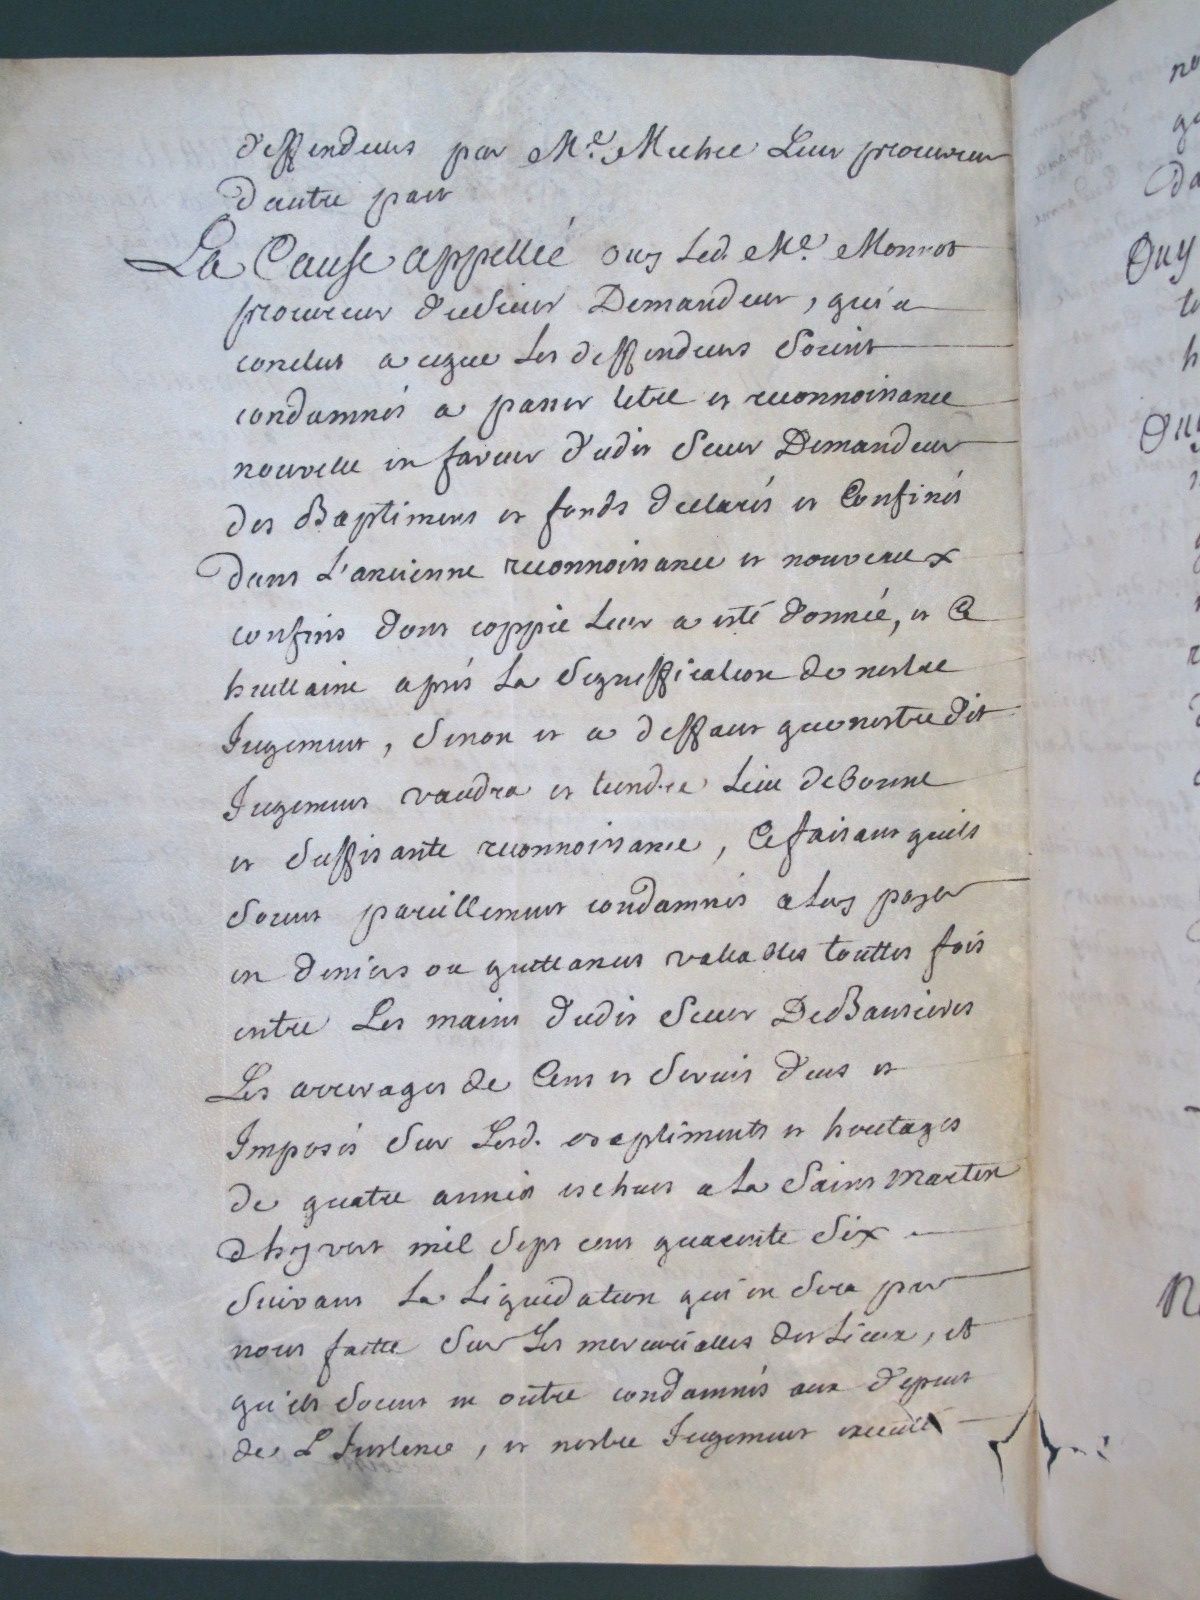 deffendeurs par Me. Michel Leur procureur
dautre part
La Cause appellée ouy Led. Me. Monrot
procureur dudsieur Demandeur, qui a
conclut a ceque Les deffendeurs Soient
condamnés a passer titre et reconnoissance
nouvelle en faveur dudit Sieur Demandeur
des Bastiments et fonds declarés et Confinés
dans L'ancienne reconnoissance et nouveaux
confins dont coppie Leur a esté donnée, et Ce
huittaine aprés La Signiffication de nostre
Jugement, Sinon et a deffaut que nostre dit
Jugement vaudra et tiendra Lieu de Bonne
et Suffisante reconnoissance, Ce faisant quils
Soient pareillement condamnés a Luy payer
en deniers ou quittances vallables touttes fois
entre Les mains dudit Sieur De
Les arrerages de Cens et Servis deus et
Imposés Sur Lesd. et heritages
de quatre années echues a La Saint Martin
dhyvert mil Sept cent quarente Six
Suivant La Liquidation qui en Sera par
nous faitte Sur Les mercurialles des Lieux, et
qu'ils Soient en outre condamnés aux depens
de L'Instence, et nostre Jugement executé
Ouy